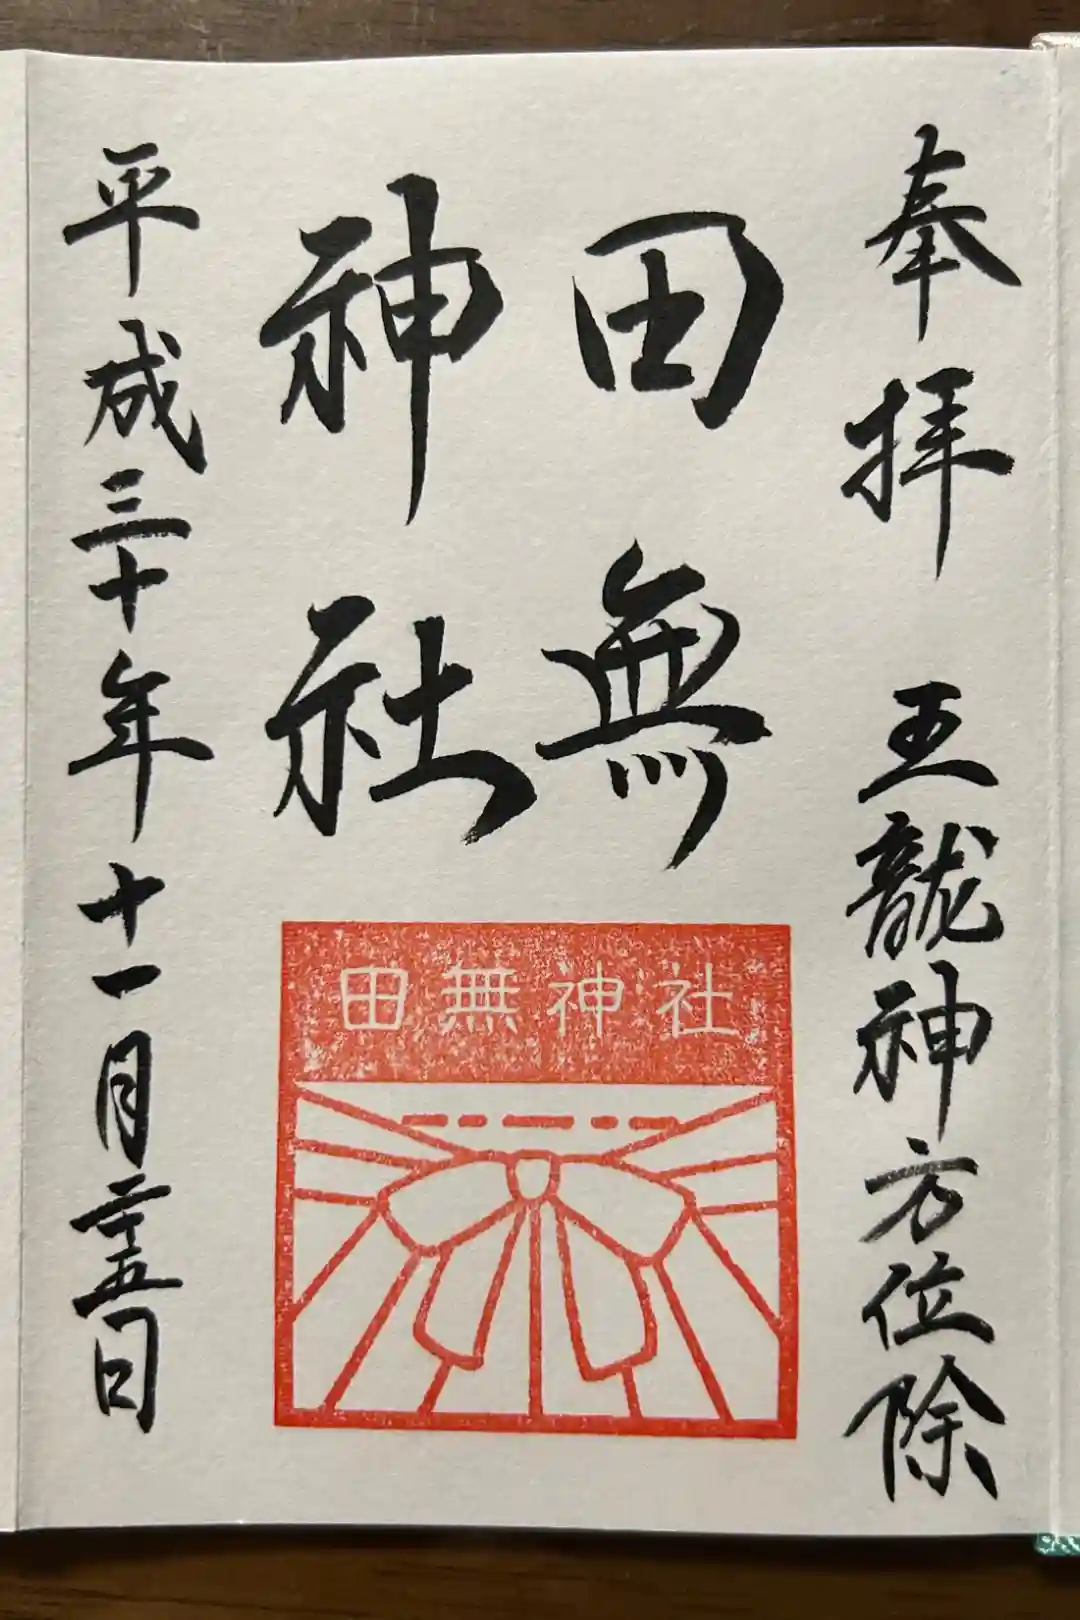 奉拝　五龍神方位除
田無
神社
田無神社
平成三十年十一月二十五日